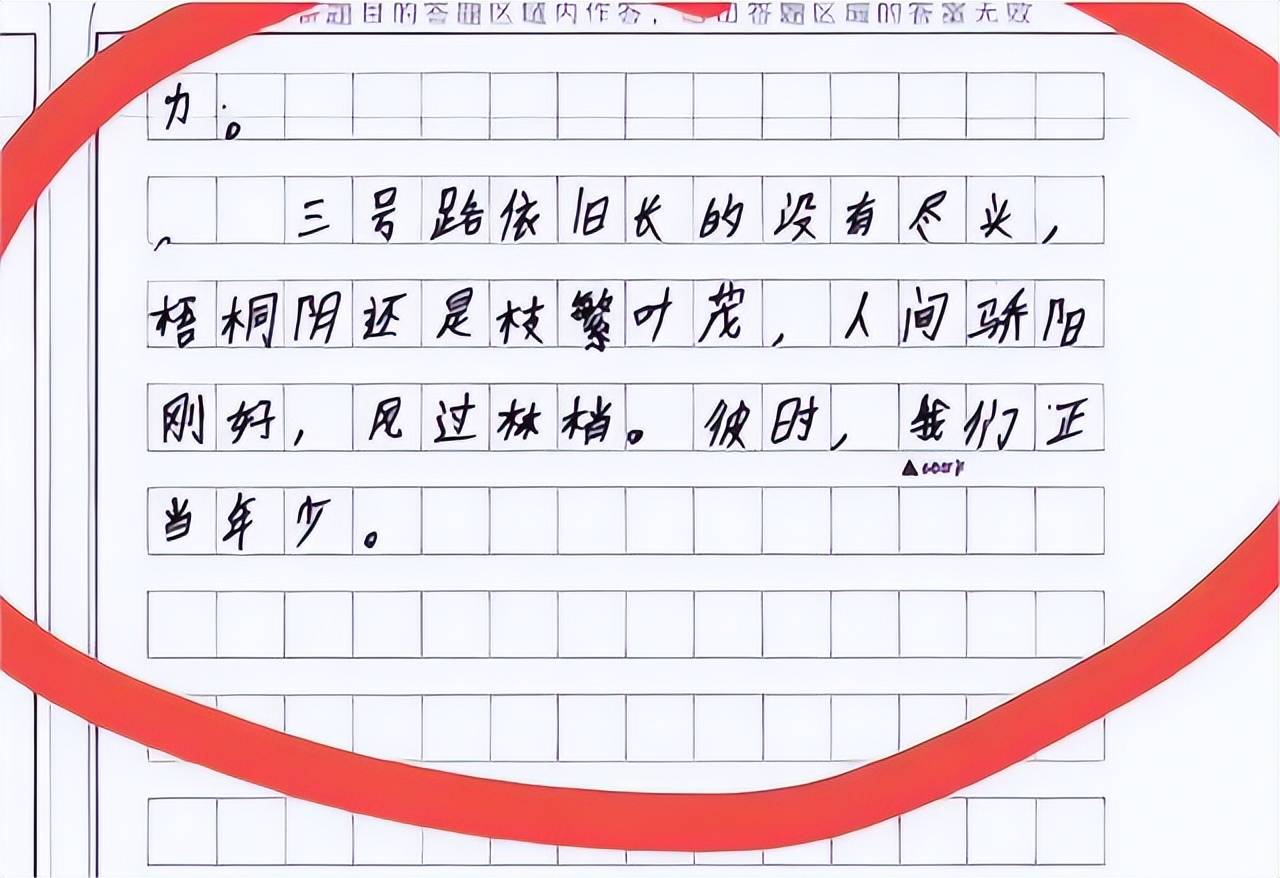 题目的答题区域内作答，超出答题区域的答案无效
力。
三号路依旧长的没有尽头，
梧桐阴还是枝繁叶茂，人间骄阳
刚好，风过林梢。彼时，我们正
▲600字
当年少。